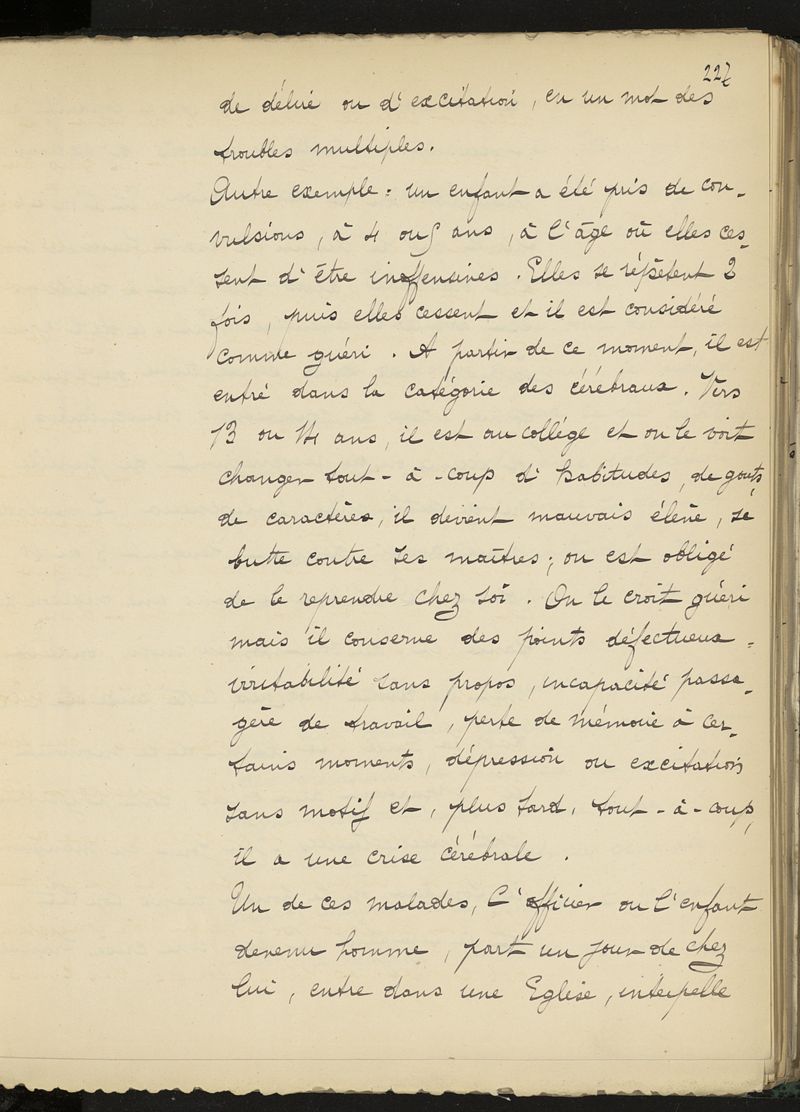 227
de délire ou d'excitation, en un mot des
troubles multiples.
Autre exemple : un enfant a été pris de con-
vulsions, à 4 ou 5 ans, à l'âge où elles ces-
sent d'être inoffensives. Elles se répètent 2
fois, puis elles cessent et il est considéré
comme guéri. A partir de ce moment, il est
entré dans la catégorie des cérébraux. Vers
13 ou 14 ans, il est au collége et on le voit
changer tout-à-coup d'habitudes, de gouts,
de caractères, il devient mauvais élève, se
butte contre ses maîtres; on est obligé
de le reprendre chez soi. On le croit guéri
mais il conserve des points défectueux :
irritabilité sans propos, incapacité passa-
gère de travail, perte de mémoire à cer-
tains moments, dépression ou excitation
sans motif et, plus tard, tout-à-coup,
il a une crise cérébrale.
Un de ces malades, l'officier ou l'enfant
devenu homme, part un jour de chez
lui, entre dans une Eglise, interpelle